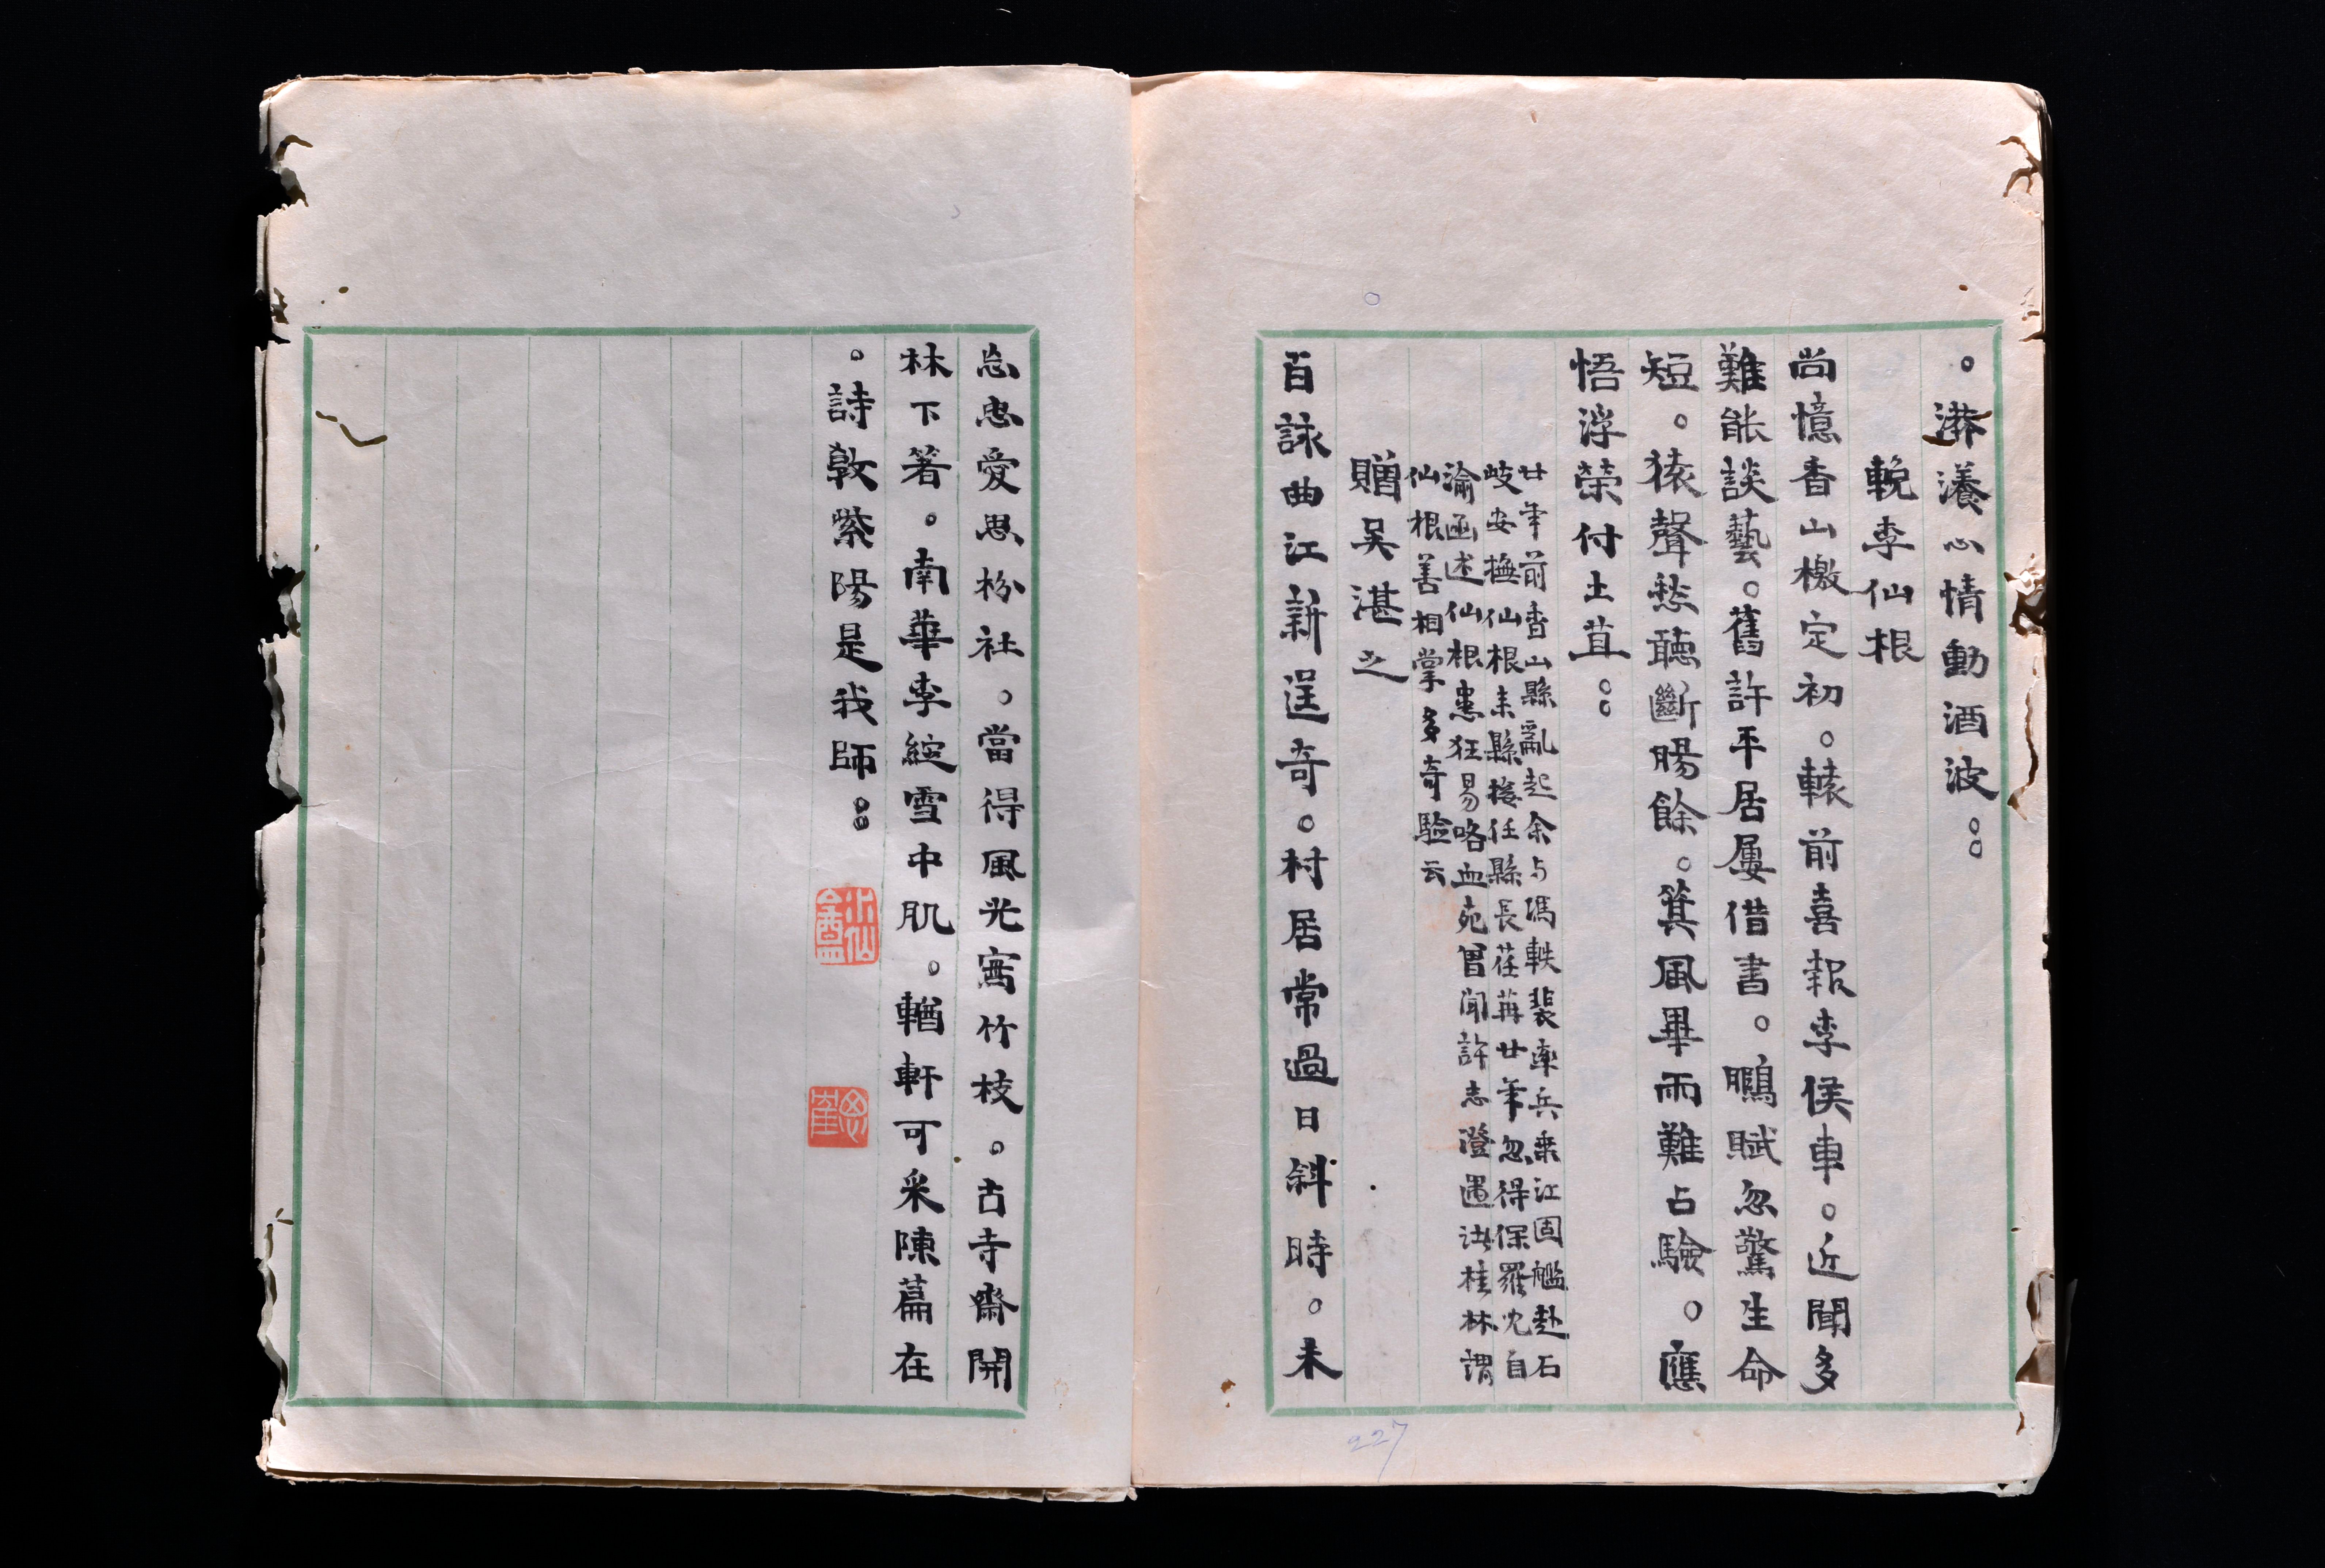 。漭瀁心情動酒波：
輓李仙根
尚憶香山檄定初。轅前喜報李侯車。近聞多
難能談藝。舊許平居屢借書。鵩賦忽驚生命
短。猿聲愁聽斷腸餘。箕風畢雨難占驗。應
悟浮榮付土苴：
廿年前香山縣亂起余与馮軼裴率兵乘江固艦赴石
岐安撫仙根耒縣接任縣長荏苒廿年忽得保羅沈自
渝函述仙根患狂易咯血宛曾聞許志澄遇
桂林謂
仙根善相掌多奇驗云
贈吴湛之
百詠曲江新逞奇。村居常過日斜時。未
忘忠愛思枌社。當得風光寫竹枝。古寺齋開
林下箸。南華李綻雪中肌。輶軒可采陳篇在
。詩敦紫陽是我師：
227